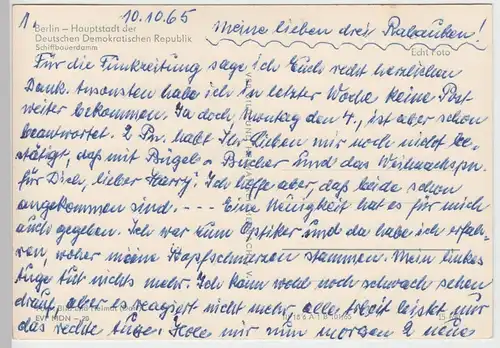 1.
10.10.65
Meine lieben drei Rabauken!
Berlin – Hauptstadt der
Deutschen Demokratischen Republik
Schiffbauerdamm
Echt Foto
Für die Funkzeitung sage ich Euch recht herzlichen
Dank. Ansonsten habe ich in letzter Woche keine Post
weiter bekommen. Ja doch Montag den 4., ist aber schon
beantwortet. 2 Pn. habt Ihr Lieben mir noch nicht be-
stätigt, das mit Bügel- Bücher und das Weihnachtspn.
für Dich, lieber Harry. Ich hoffe aber, daß beide schon
angekommen sind. ---- Eine Neuigkeit hat es für mich
auch gegeben. Ich war zum Optiker und da habe ich erfah-
ren, woher meine Kopfschmerzen stammen. Mein linkes
Auge tut nichts mehr. Ich kann wohl noch schwach sehen
drauf, aber es reagiert nicht mehr, alle Arbeit leistet nur
das rechte Auge. Hole mir nun morgen 2 neue